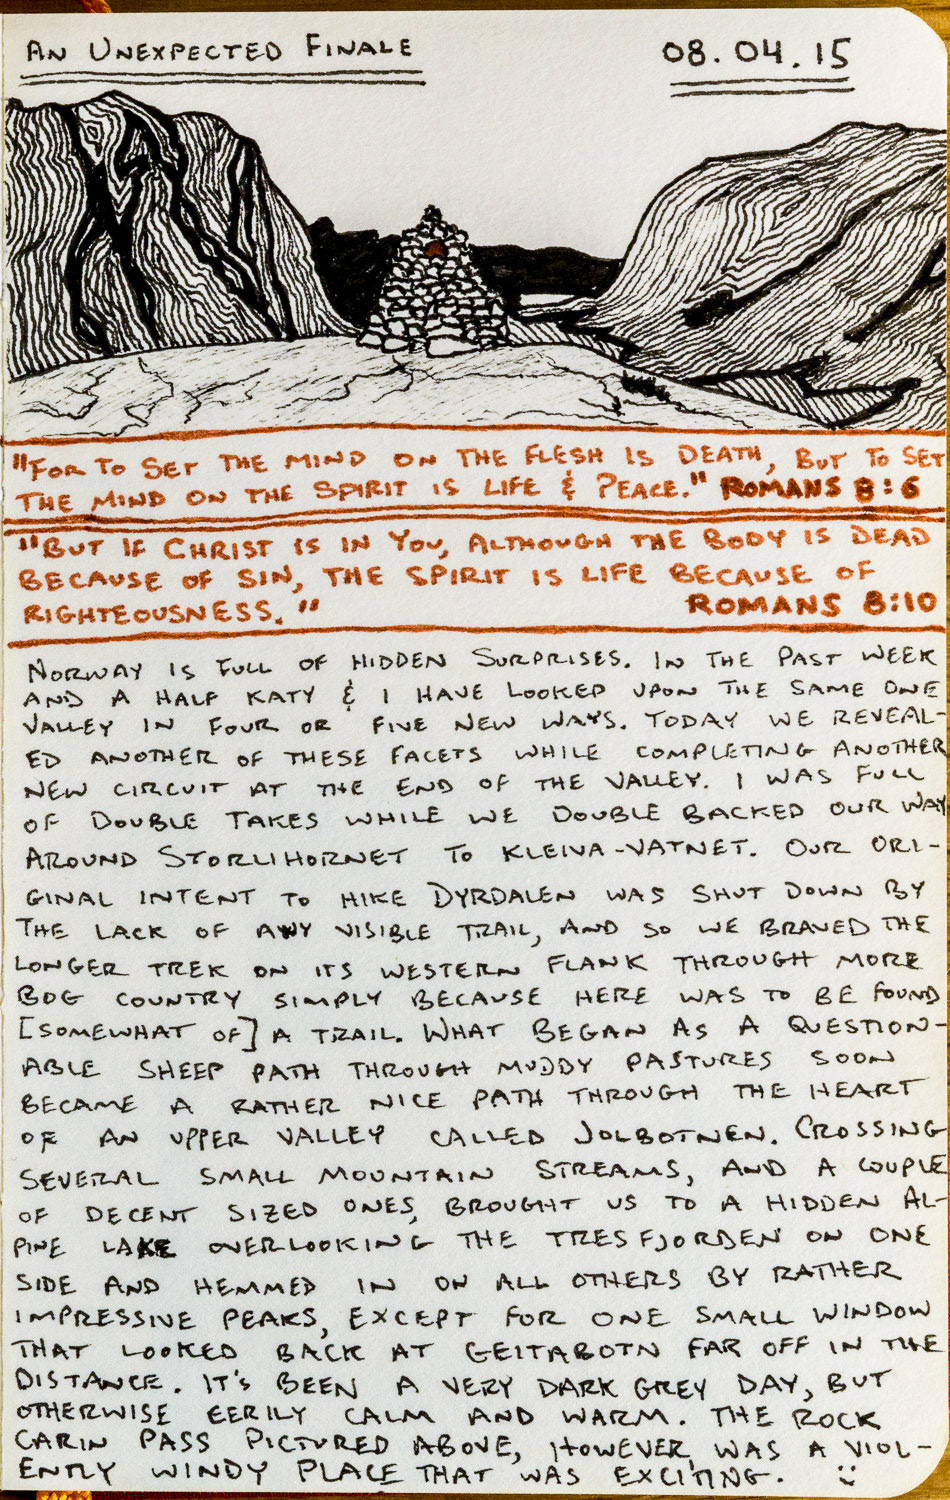 AN UNEXPECTED FINALE 08.04.15
"FOR TO SET THE MIND ON THE FLESH IS DEATH, BUT TO SET
THE MIND ON THE SPIRIT IS LIFE & PEACE." ROMANS 8:6
"BUT IF CHRIST IS IN YOU, ALTHOUGH THE BODY IS DEAD
BECAUSE OF SIN, THE SPIRIT IS LIFE BECAUSE OF
RIGHTEOUSNESS." ROMANS 8:10
NORWAY IS FULL OF HIDDEN SURPRISES. IN THE PAST WEEK
AND A HALF KATY & I HAVE LOOKED UPON THE SAME ONE
VALLEY IN FOUR OR FIVE NEW WAYS. TODAY WE REVEAL-
ED ANOTHER OF THESE FACETS WHILE COMPLETING ANOTHER
NEW CIRCUIT AT THE END OF THE VALLEY. I WAS FULL
OF DOUBLE TAKES WHILE WE DOUBLE BACKED OUR WAY
AROUND STORLIHORNET TO KLEIVA-VATNET. OUR ORI-
GINAL INTENT TO HIKE DYRDALEN WAS SHUT DOWN BY
THE LACK OF ANY VISIBLE TRAIL, AND SO WE BRAVED THE
LONGER TREK ON ITS WESTERN FLANK THROUGH MORE
BOG COUNTRY SIMPLY BECAUSE HERE WAS TO BE FOUND
[SOMEWHAT OF] A TRAIL. WHAT BEGAN AS A QUESTION-
ABLE SHEEP PATH THROUGH MUDDY PASTURES SOON
BECAME A RATHER NICE PATH THROUGH THE HEART
OF AN UPPER VALLEY CALLED JOLBOTNEN. CROSSING
SEVERAL SMALL MOUNTAIN STREAMS, AND A COUPLE
OF DECENT SIZED ONES, BROUGHT US TO A HIDDEN AL-
PINE LAKE OVERLOOKING THE TRESFJORDEN ON ONE
SIDE AND HEMMED IN ON ALL OTHERS BY RATHER
IMPRESSIVE PEAKS, EXCEPT FOR ONE SMALL WINDOW
THAT LOOKED BACK AT GEITABOTN FAR OFF IN THE
DISTANCE. IT'S BEEN A VERY DARK GREY DAY, BUT
OTHERWISE EERILY CALM AND WARM. THE ROCK
CARIN PASS PICTURED ABOVE, HOWEVER, WAS A VIOL-
ENTLY WINDY PLACE THAT WAS EXCITING. :)